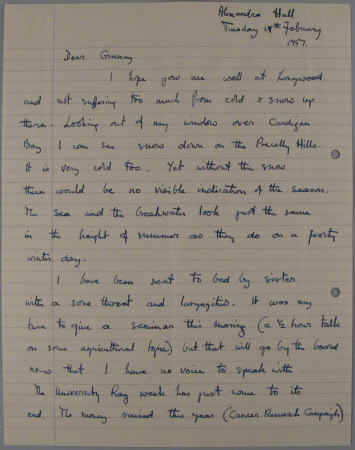 Alexandra Hall
Tuesday 18th February
1957.
Dear Granny
I hope you are well at Longwood
and not suffering too much from cold & snow up
there. Looking out of my window over Cardigan
Bay I can see snow down on the Precelly Hills.
It is very cold too. Yet without the snow
there would be no visible indication of the season.
The sea and the breakwater look just the same
in the height of summer as they do on a frosty
winter day.
I have been sent to bed by sister
with a sore throat and laryngitis. It was my
turn to give a seminar this morning (a ½ hour talk
on some agricultural topic) but that will go by the board
now that I have no voice to speak with.
The University Rag week has just come to its
end. The money raised this year (Cancer Research Campaign)